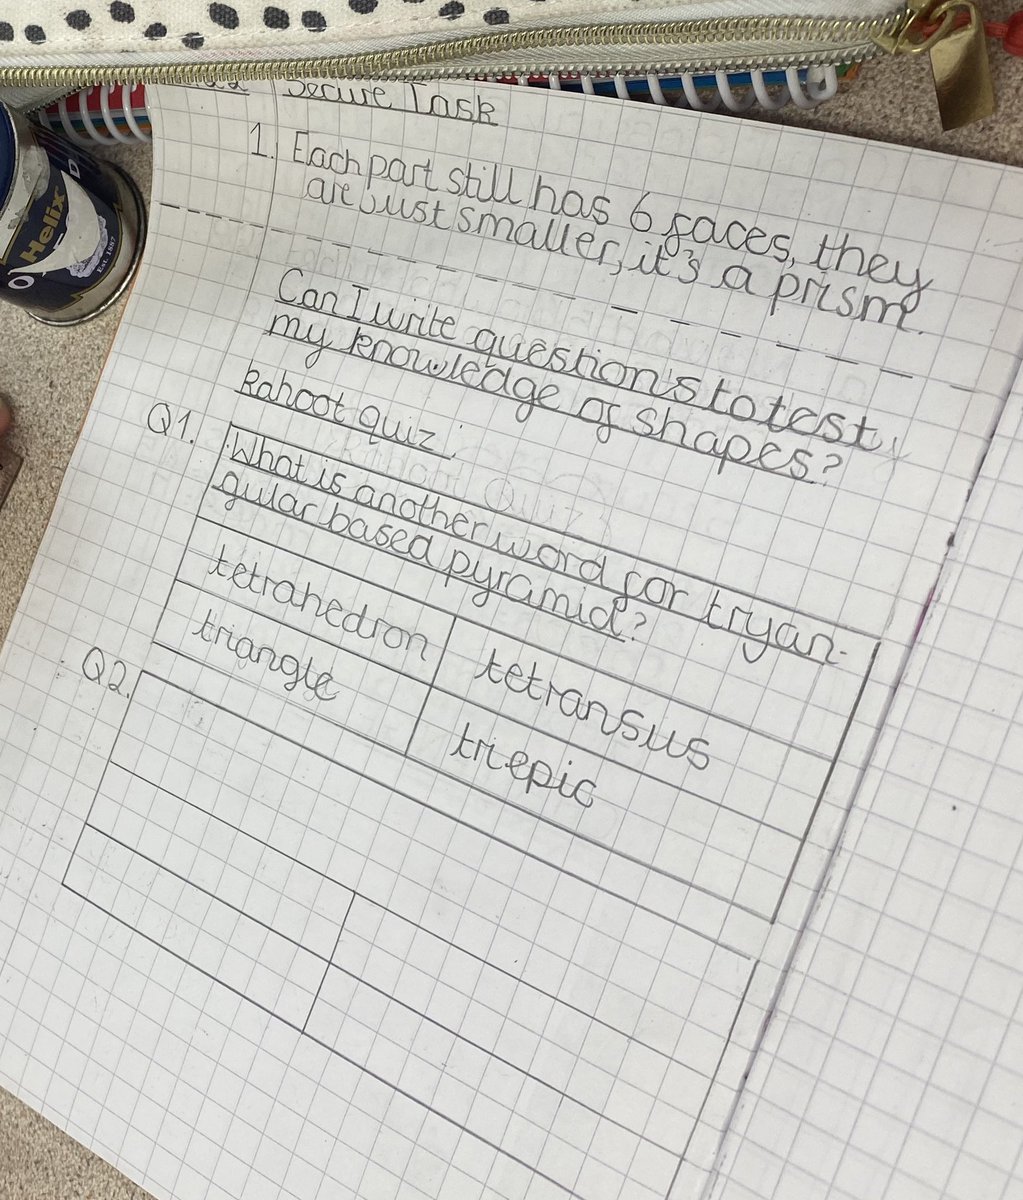 Secure Task
1. Each part still has 6 faces, they
are just smaller, it's a prism.
Can I write question's to test
my knowledge of shapes?
Kahoot quiz:
Q1.
What is another word for tryan-
gular based pyramid?
tetrahedron
tetransus
triangle
triepic
Q2.
Helix
Est. 1887